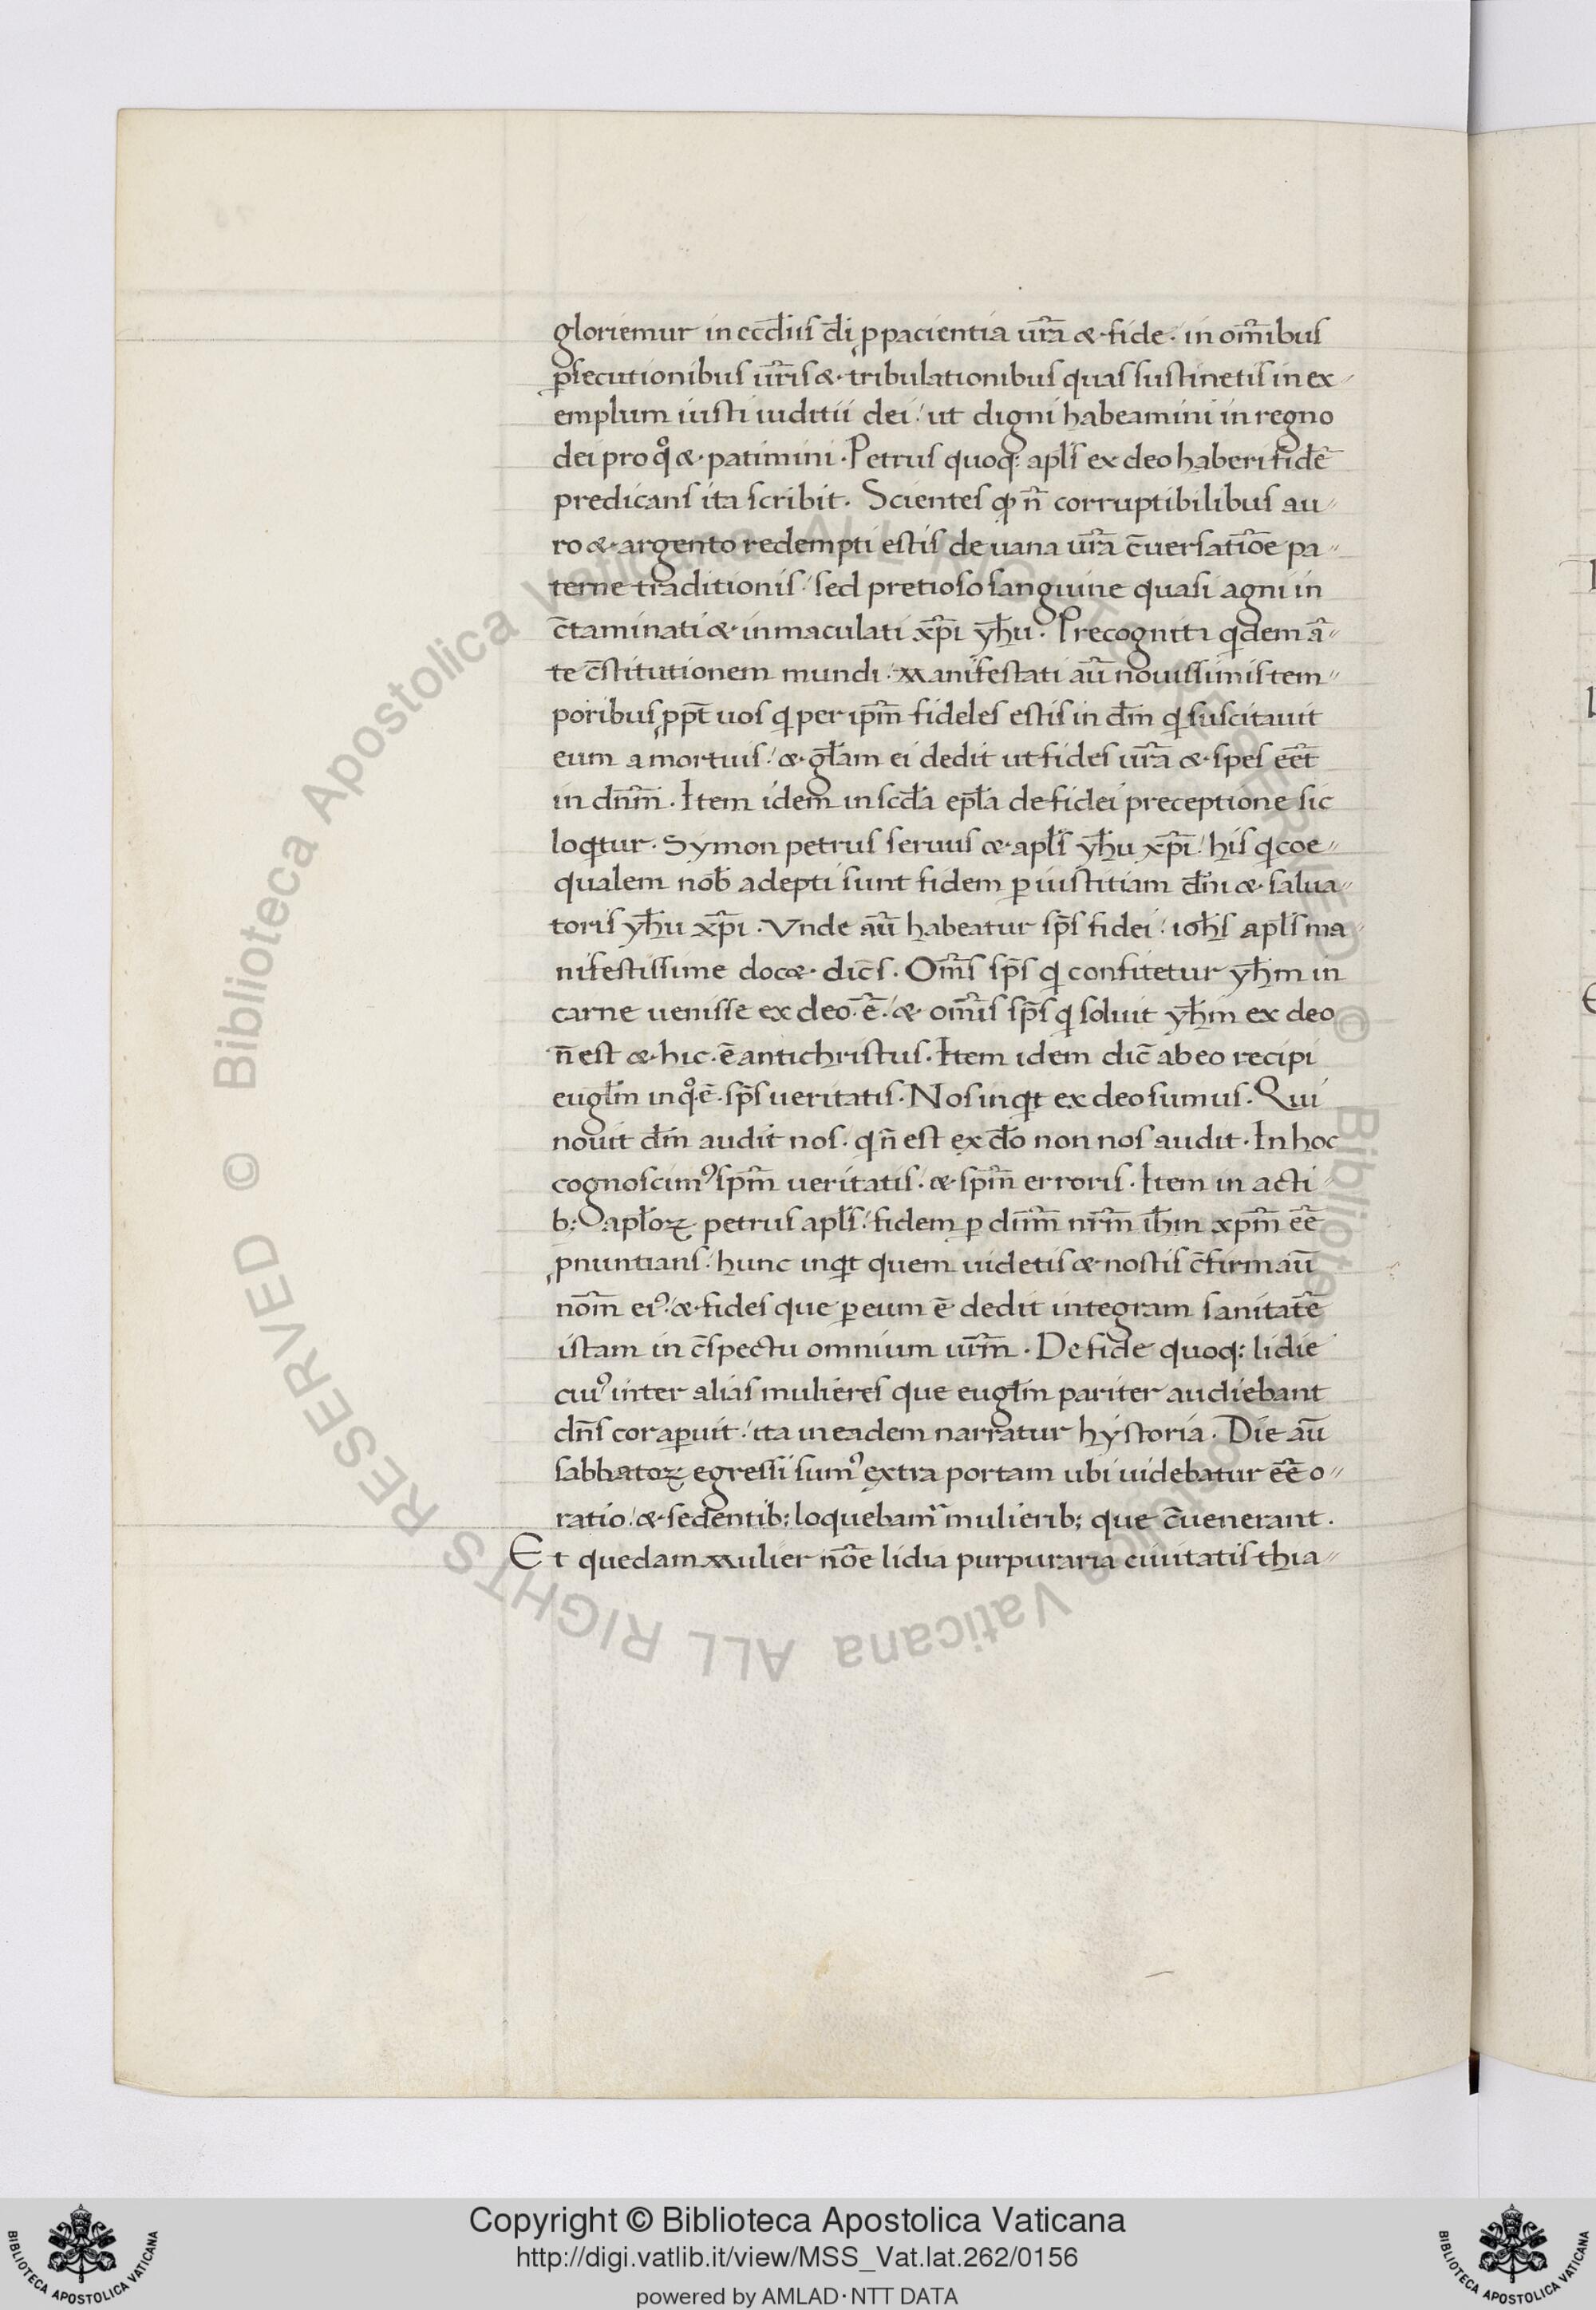 gloriemur in eccl̄iis dī ꝓ pacientia ur̄a & fide. in om̄ibus
ꝑsecutionibus ur̄is & tribulationibus quas sustinetis in ex
emplum iusti iuditii dei. ut digni habeamini in regno
dei pro qͦ & patimini. Petrus quoq: apl̄s ex deo haberi fidē
predicans ita scribit. Scientes ꝙ n̄ corruptibilibus au
ro & argento redempti estis de uana ur̄a c̄uersatiōe pa
terne traditionis. sed pretioso sanguine quasi agni in
c̄taminati & inmaculati xp̄i yh̄u. Precogniti qdem ā
te c̄stitutionem mundi. Manifestati aū nouissimis tem
poribus ꝓpt̄ uos q per ip̄m fideles estis in dm̄ q suscitauit
eum a mortuis. & gl̄am ei dedit ut fides ur̄a & spes eēt
in dn̄m. Item idem in scd̄a epl̄a de fidei preceptione sic
loqtur. Symon petrus seruus & apl̄s yh̄u xp̄i. his q coe
qualem nob̄ adepti sunt fidem ꝑ iustitiam dn̄i & salua
toris yh̄u xp̄i. Vnde aū habeatur sp̄s fidei. ioh̄s apl̄s ma
nifestissime doc& dic̄s. Om̄s sp̄s q confitetur yh̄m in
carne uenisse ex deo. ē. & om̄is sp̄s q soluit yh̄m ex deo
n̄ est & hic. ē antichristus. Item idem dic̄ ab eo recipi
eugl̄m in qͦ. ē. sp̄s ueritatis. Nos inqt ex deo sumus. Qui
nouit dm̄ audit nos. q n̄ est ex dō non nos audit. In hoc
cognoscimꝰ sp̄m ueritatis. & sp̄m erroris. Item in acti
b; apl̄oꝝ petrus apl̄s. fidem ꝑ dn̄m nr̄m ih̄m xp̄m eē
ꝓnuntians. hunc inqt quem uidetis & nostis c̄firmaū
nom̄ eiꝰ. & fides que ꝑ eum ē dedit integram sanitatē
istam in c̄spectu omnium ur̄m. De fide quoq: lidie
cuiꝰ inter alias mulieres que eugl̄m pariter audiebant
dn̄s cor aꝑuit. ita in eadem narratur hystoria. Die aū
sabbatoꝝ egressi sumꝰ extra portam ubi uidebatur eē o
ratio. & sedentib; loquebam̄ mulierib; que c̄uenerant.
Et quedam mulier nōe lidia purpuraria ciuitatis thia
Copyright © Biblioteca Apostolica Vaticana
http://digi.vatlib.it/view/MSS_Vat.lat.262/0156
powered by AMLAD·NTT DATA